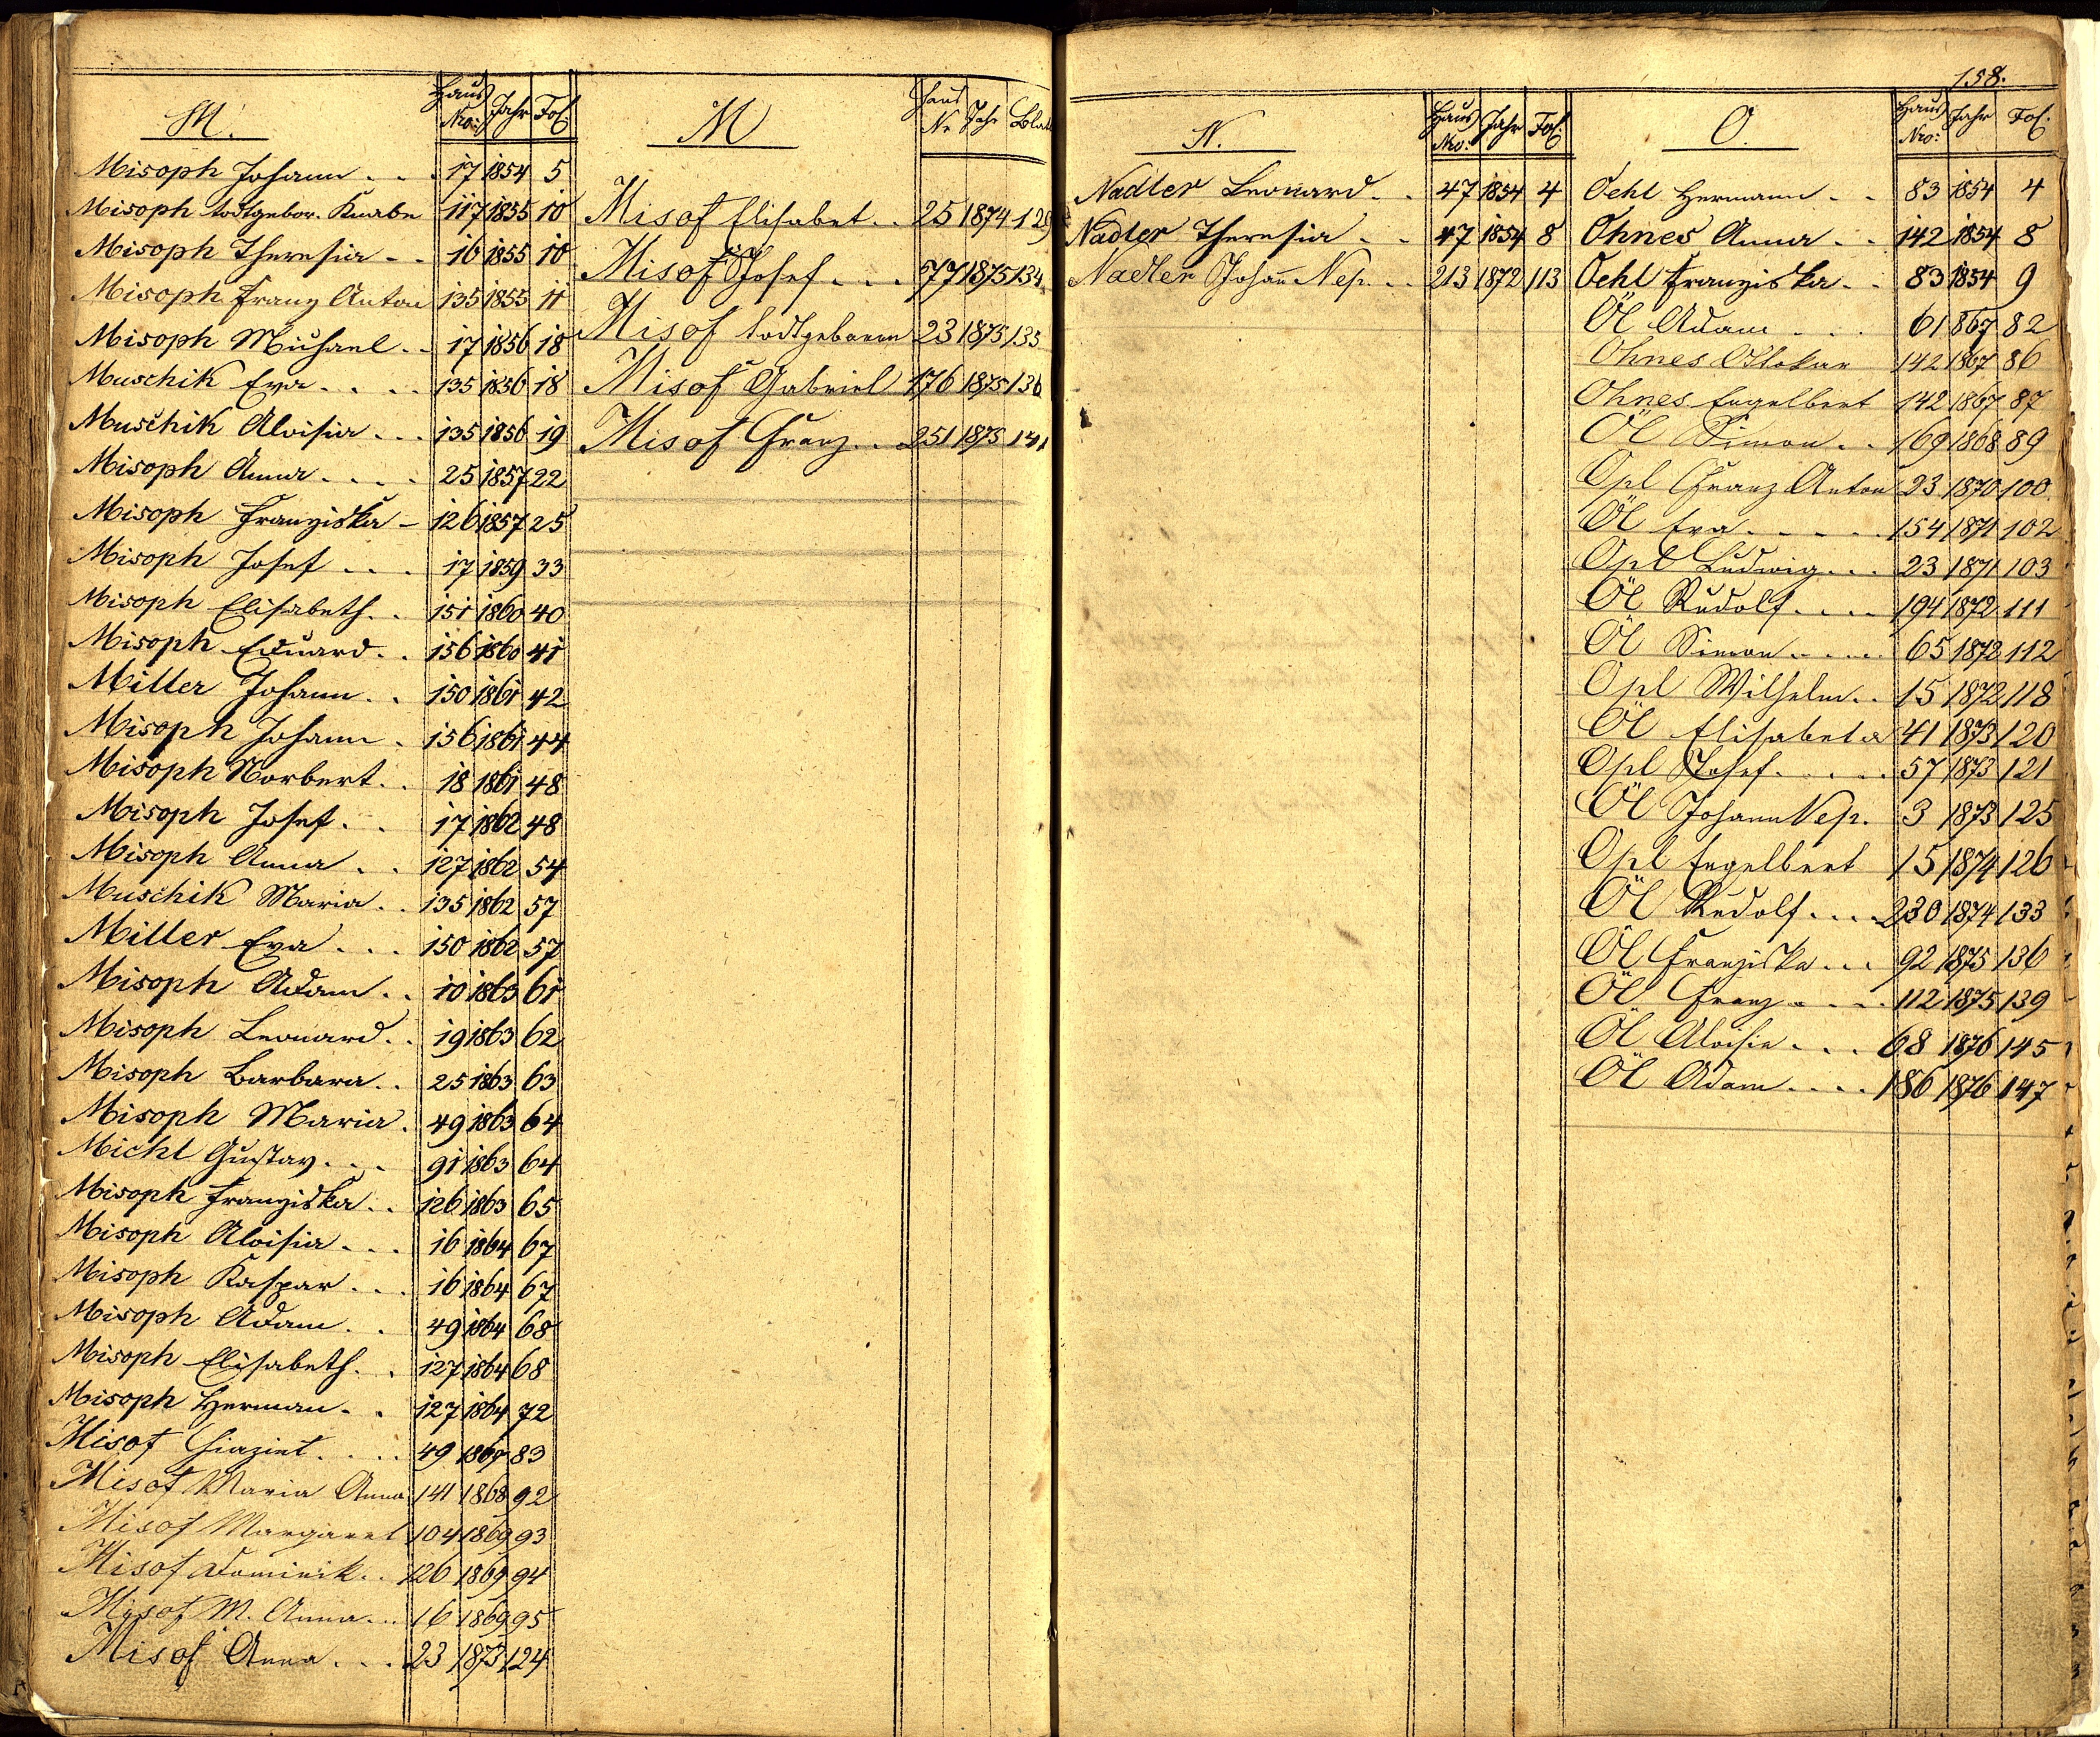 M. Haus Nro: Jahr Fol.
Misoph Johann . . . 17 1854 5
Misoph todtgebor. Knabe 117 1855 10
Misoph Theresia . . 16 1855 10
Misoph Franz Anton 135 1855 11
Misoph Michael . . 17 1856 18
Muschik Eva . . . . 135 1856 18
Muschik Aloisia . . . 135 1856 19
Misoph Anna . . . . 25 1857 22
Misoph Franziska - 126 1857 25
Misoph Josef . . . 17 1859 33
Misoph Elisabeth . . 151 1860 40
Misoph Eduard . . 156 1860 41
Miller Johann . . 150 1861 42
Misoph Johann . 156 1861 44
Misoph Norbert . . 18 1861 48
Misoph Josef . . 17 1862 48
Misoph Anna . . 127 1862 54
Muschik Maria . . 135 1862 57
Miller Eva . . . 150 1862 57
Misoph Adam . . 10 1863 61
Misoph Leonard . . 19 1863 62
Misoph Barbara . . 25 1863 63
Misoph Maria . 49 1863 64
Michl Gustav . . . 91 1863 64
Misoph Franziska . . 126 1863 65
Misoph Aloisia . . . 16 1864 67
Misoph Kaspar . . . 16 1864 67
Misoph Adam . . 49 1864 68
Misoph Elisabeth . . 127 1864 68
Misoph Herman . . 127 1864 72
Misof . . . . 49 1867 83
Misof Maria Anna 141 1868 92
Misof Margaret 104 1869 93
Misof Dominik . . 126 1869 94
Misof M. Anna . . . 16 1869 95
Misof Anna . . . 23 1873 124
M Haus Nr Jahr Blatt
Misof Elisabet . . 25 1874 129
Misof Josef . . . 77 1875 134
Misof todtgeboren 23 1875 135
Misof Gabriel 176 1875 136
Misof Franz . . 251 1875 141
158.
N. Haus Nro: Jahr Fol.
Nadler Leonard . . 47 1854 4
Nadler Theresia . . 47 1854 8
Nadler Johann Nep. . . 213 1872 113
O. Haus Nro: Jahr Fol.
Oehl Hermann . . 83 1854 4
Ohnes Anna . . 142 1854 8
Oehl Franziska . . 83 1854 9
Öl Adam . . . 6 1867 82
Ohnes Ottokar 142 1867 86
Ohnes Engelbert 142 1867 87
Öl Simon . . 169 1868 89
Opl Franz Anton 23 1870 100
Öl Eva . . . . . 154 1871 102
Opl Ludwig . . . 23 1871 103
Öl Rudolf . . . . 194 1872 111
Öl Simon . . . . 65 1872 112
Opl Wilhelm . . 15 1872 118
Öl Elisabeta 41 1873 120
Opl Josef . . . . . 57 1873 121
Öl Johann Nep. 3 1873 125
Opl Engelbert 15 1874 126
Öl Rudolf . . . . 230 1874 133
Öl Franziska . . . 92 1875 136
Öl Franz . . . . 112 1875 139
Öl Aloisia . . . 68 1876 145
Öl Adam . . . . 186 1876 147